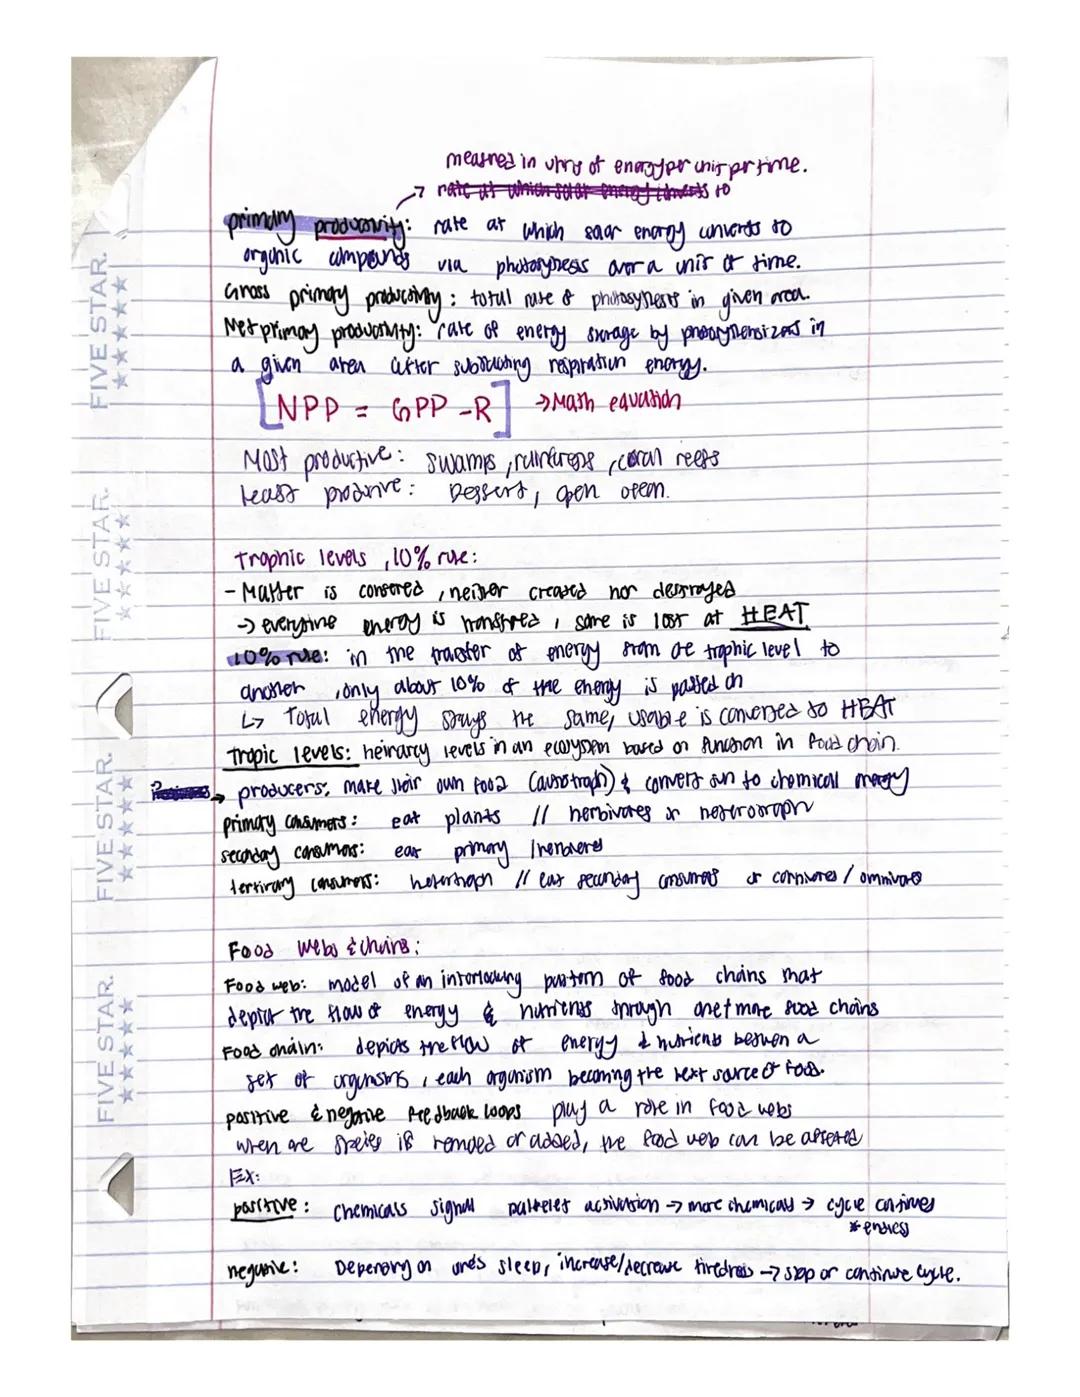 measured in units of energy per unit per time.
→ rate at which solar energy converts to
primary productivity: rate at which solar energy converts to
organic compounds via photosynthesis over a unit of time.
Gross primary productivity: total rate of photosynthesis in given area.
Net primary productivity: rate of energy storage by photosynthesizers in
a given area after subtracting respiration energy.
[NPP = GPP - R] → Math equation
Most productive: swamps, rainforests, coral reefs
Least productive: Dessert, open ocean.
Trophic levels, 10% rule:
- Matter is conserved, neither created nor destroyed
→ everytime energy is transfered, some is lost at HEAT
10% rule: in the transfer of energy from one trophic level to
another, only about 10% of the energy is passed on
↳ Total energy stays the same, usable is converted to HEAT
Tropic levels: heirarcy levels in an ecosystem based on function in food chain.
→ producers: make their own food (autotroph) & convert sun to chemical energy
primary consumers: eat plants // herbivores or heterotroph
secondary consumers: eat primary /
tertirary consumers: hetertroph // eat secondary consumers or carnivores / omnivores
Food webs & chains:
Food web: model of an interlocking pattern of food chains that
depict the flow of energy & nutrients through one + more food chains
Food chain: depicts the flow of energy & nutrients between a
set of organisms, each organism becoming the next source of food.
positive & negative feedback loops play a role in food webs
when one species is removed or added, the food web can be affected
Ex:
positive: chemicals signal activation → more chemicals → cycle continues
* endless
negative: Depending on one's sleep, increase/decrease tiredness → stop or continue cycle.
FIVE STAR.
★★★★★
FIVE STAR.
★★★★★
FIVE STAR.
★★★★★
FIVE STAR.
★★★★★